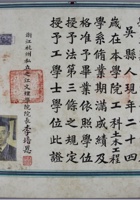 吳縣人現年二十四
歲在本學院工科土木工程
學系修業期滿成績及
格准予畢業依照學位
授予法第三條之規定
授予工學士學位此證
浙江杭州私立之江文理學院院長李培恩